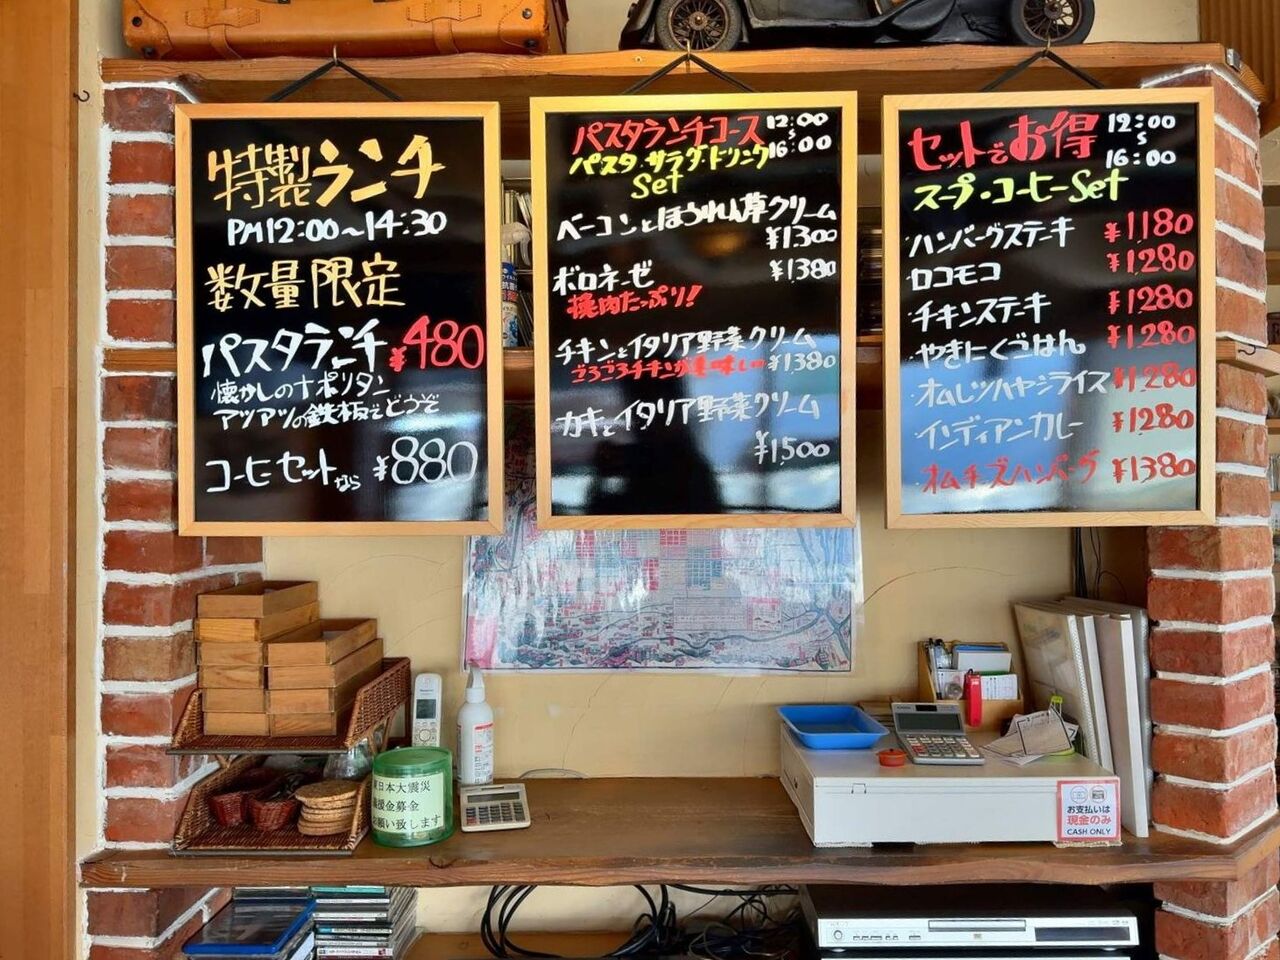 特製ランチ
PM12:00~14:30
数量限定
パスタランチ ¥480
懐かしのナポリタン
アツアツの鉄板でどうぞ
コーヒーセットなら ¥880
パスタランチコース 12:00
パスタ・サラダ・ドリンク 16:00
Set
ベーコンとほうれん草クリーム
¥1300
ボロネーゼ ¥1380
挽肉たっぷり!
チキンとイタリア野菜クリーム
ごろごろチキンが美味しい ¥1380
カキとイタリア野菜クリーム
¥1,500
セットでお得 12:00
16:00
スープ・コーヒーSet
ハンバーグステーキ ¥1,180
ロコモコ ¥1,280
チキンステーキ ¥1280
やきにくごはん ¥1,280
オムレツハヤシライス ¥1,280
インディアンカレー ¥1280
オムチーズハンバーグ ¥1380
東日本大震災
義援金募金
お願い致します
お支払いは
現金のみ
CASH ONLY